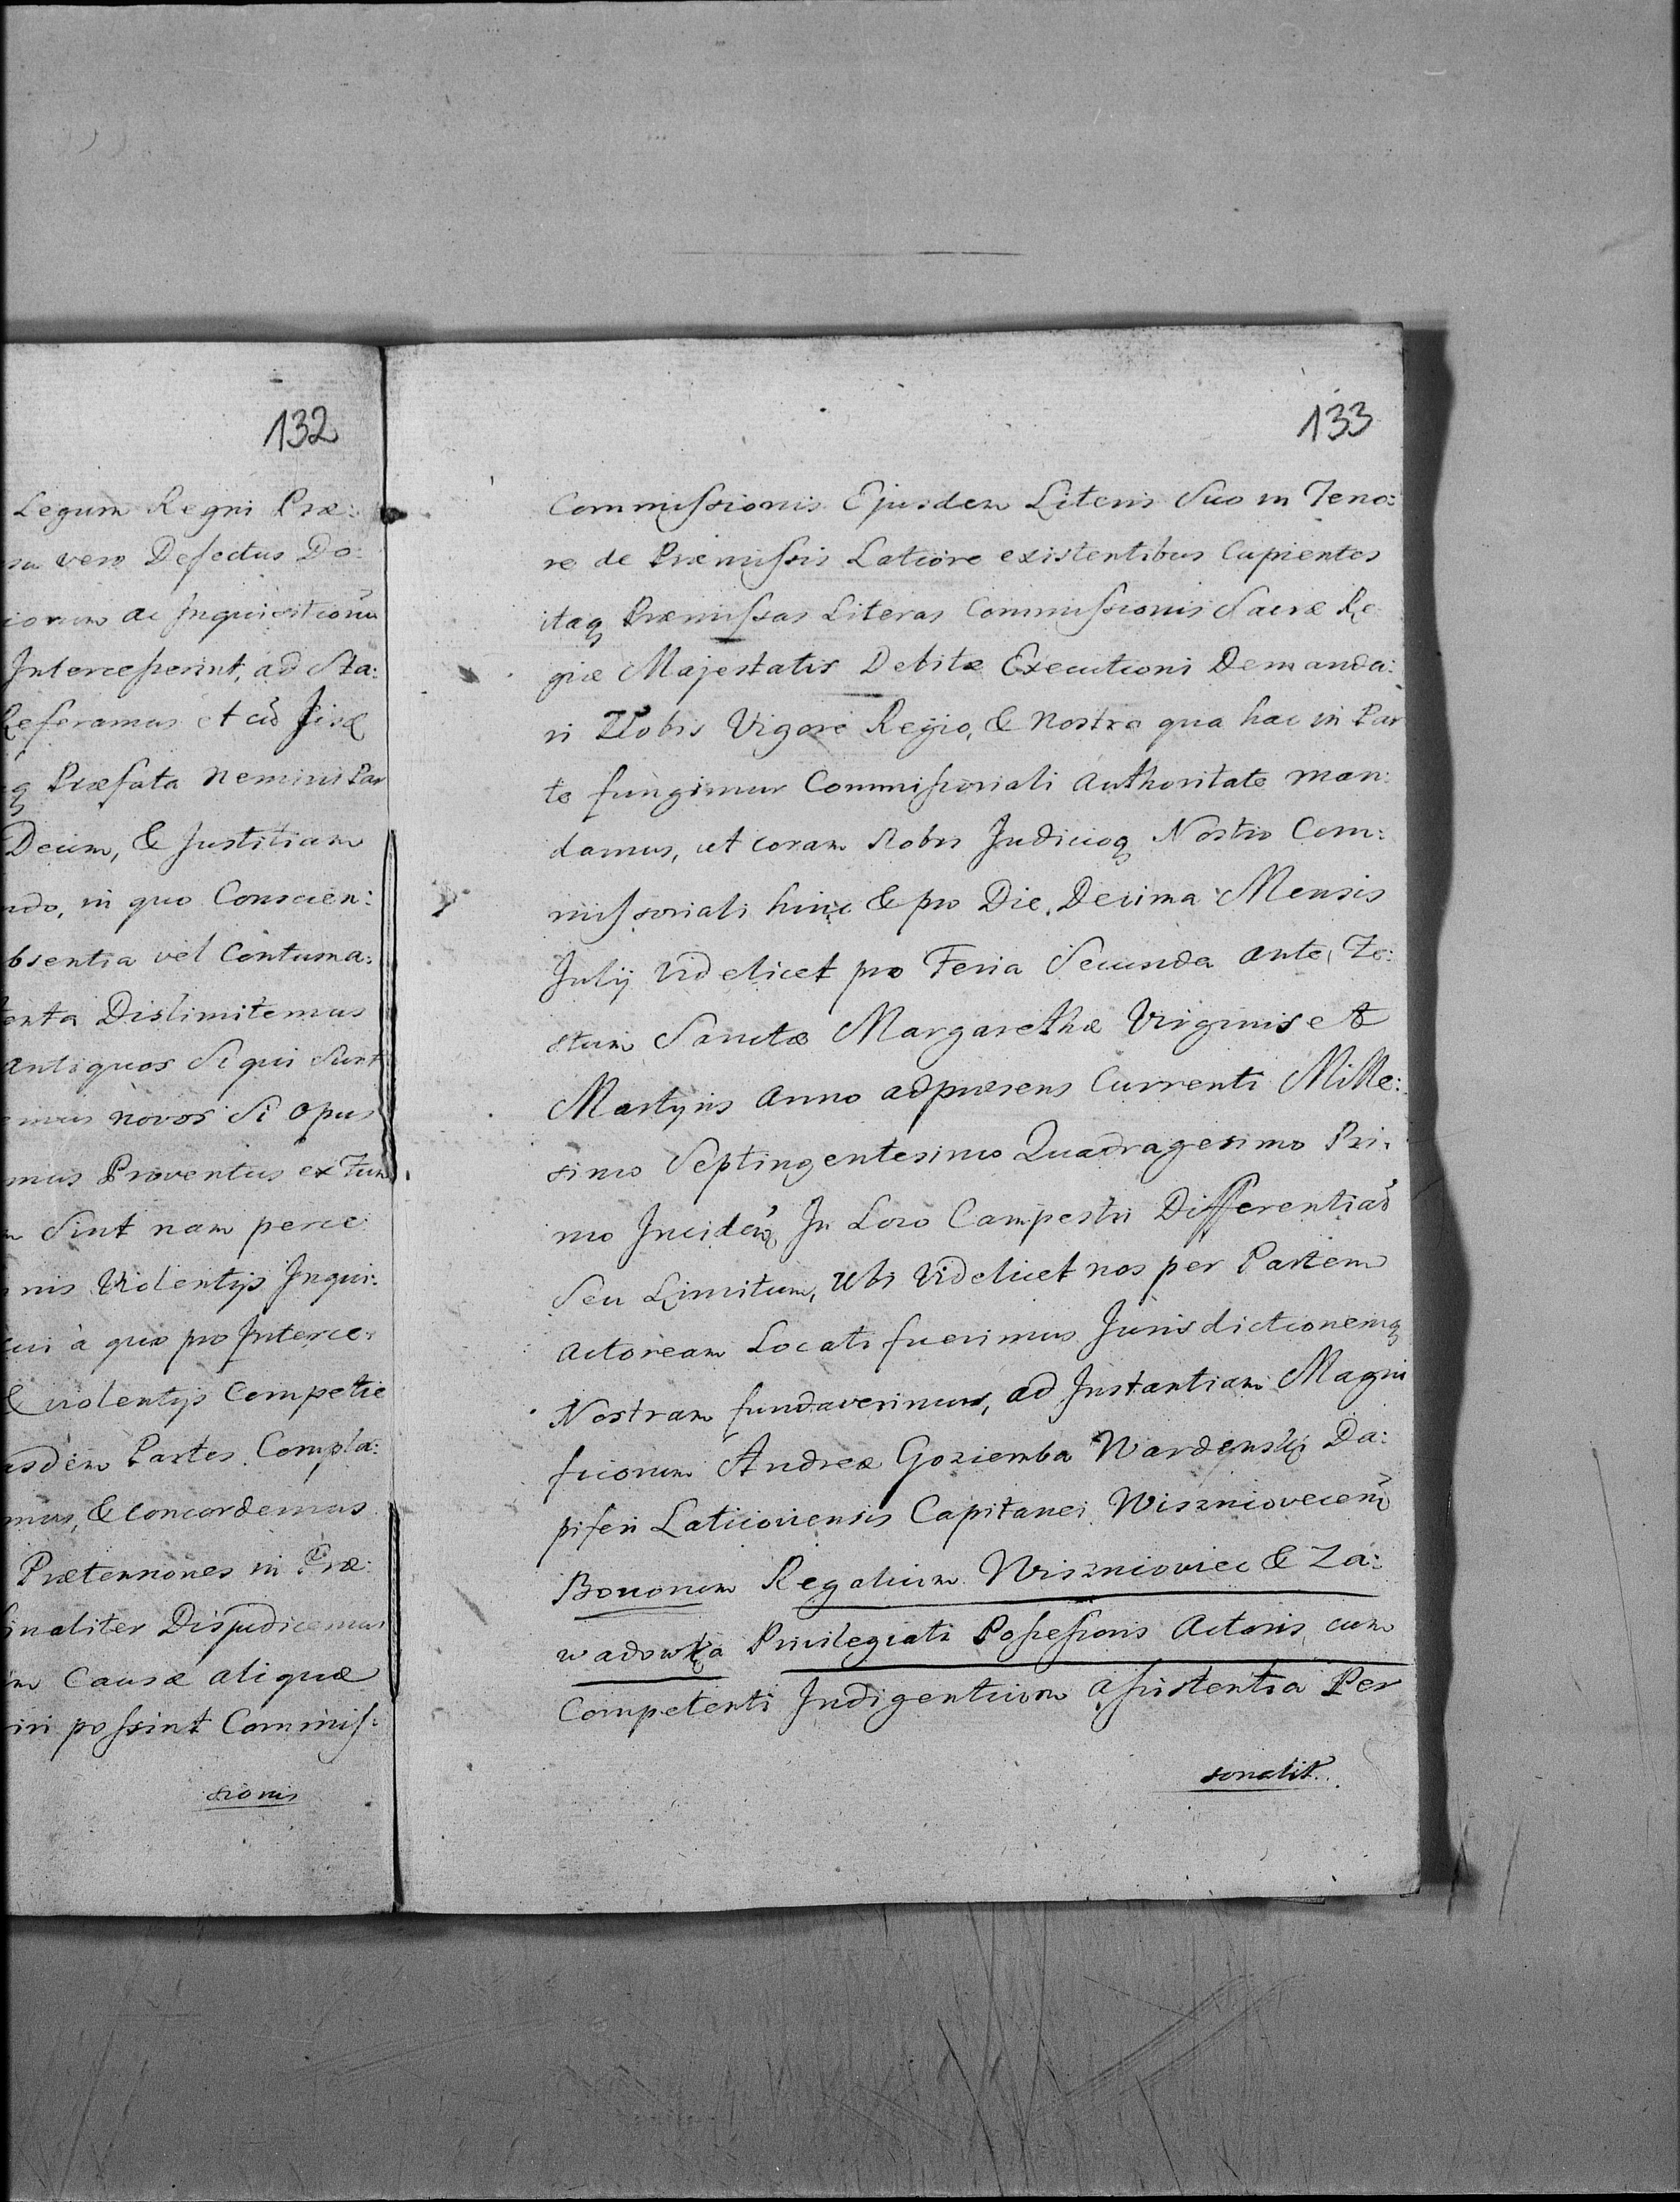 132
Legum Regni Præ:
vero Defectus Do:
ac Inquisitionũ
Intercesserint, ad Sta:
Referamus et
Præfata Nemini Par
Deum, & Justitiam
in quo Conscien:
bsentia vel Contuma:
Dislimitemus
antiquos Si qui Sunt
novos Si opus
Proventus ex Tunc
Sint nam perce
nis Violentijs Inqui:
à quo pro Interce:
& violentijs Competie
asdem Partes Compla:
mus, & Concordemus
Prætensiones in Præ:
finaliter Disjudicemus
Causæ aliquæ
possint Commiss:
sionis
133
Commissionis Ejusdem Literis Suo in Teno:
re de Præmissis Latiore existentibus Cupientes
itaq Præmissas Literas Commissionis Sacræ Re
giæ Majestatis Debitæ Executioni Demanda:
ri Vobis Vigore Regio, & Nostra qua hac in Par
te fungimur Commissoriali Authoritate man:
damus, ut coram Nobis Judicioq Nostro Com:
missoriali hinc & pro Die Decima Mensis
Julij videlicet pro Feria Secunda ante Fe:
stum Sanctæ Margarethæ Virginis et
Martyris Anno adpræsens Currenti Mille:
simo Septingentesimo Quadragesimo Pri:
mo In Loco Campestri Differentiaȓ
Seu Limitum, Ubi Videlicet nos per Partem
Actoream Locati fuerimus Jurisdictionemq
Nostram fundaverimus, ad Instantiam Magni
ficorum Andreæ Goziemba Wardęnski Da:
piferi Laticoviensis Capitanei Wiszniovecen̄
Bonorum Regalium Wiszniowiec & Za:
wadowka Privilegiati Possessoris Actoris, cum
Competenti Indigentium assistentia Per
sonalit.